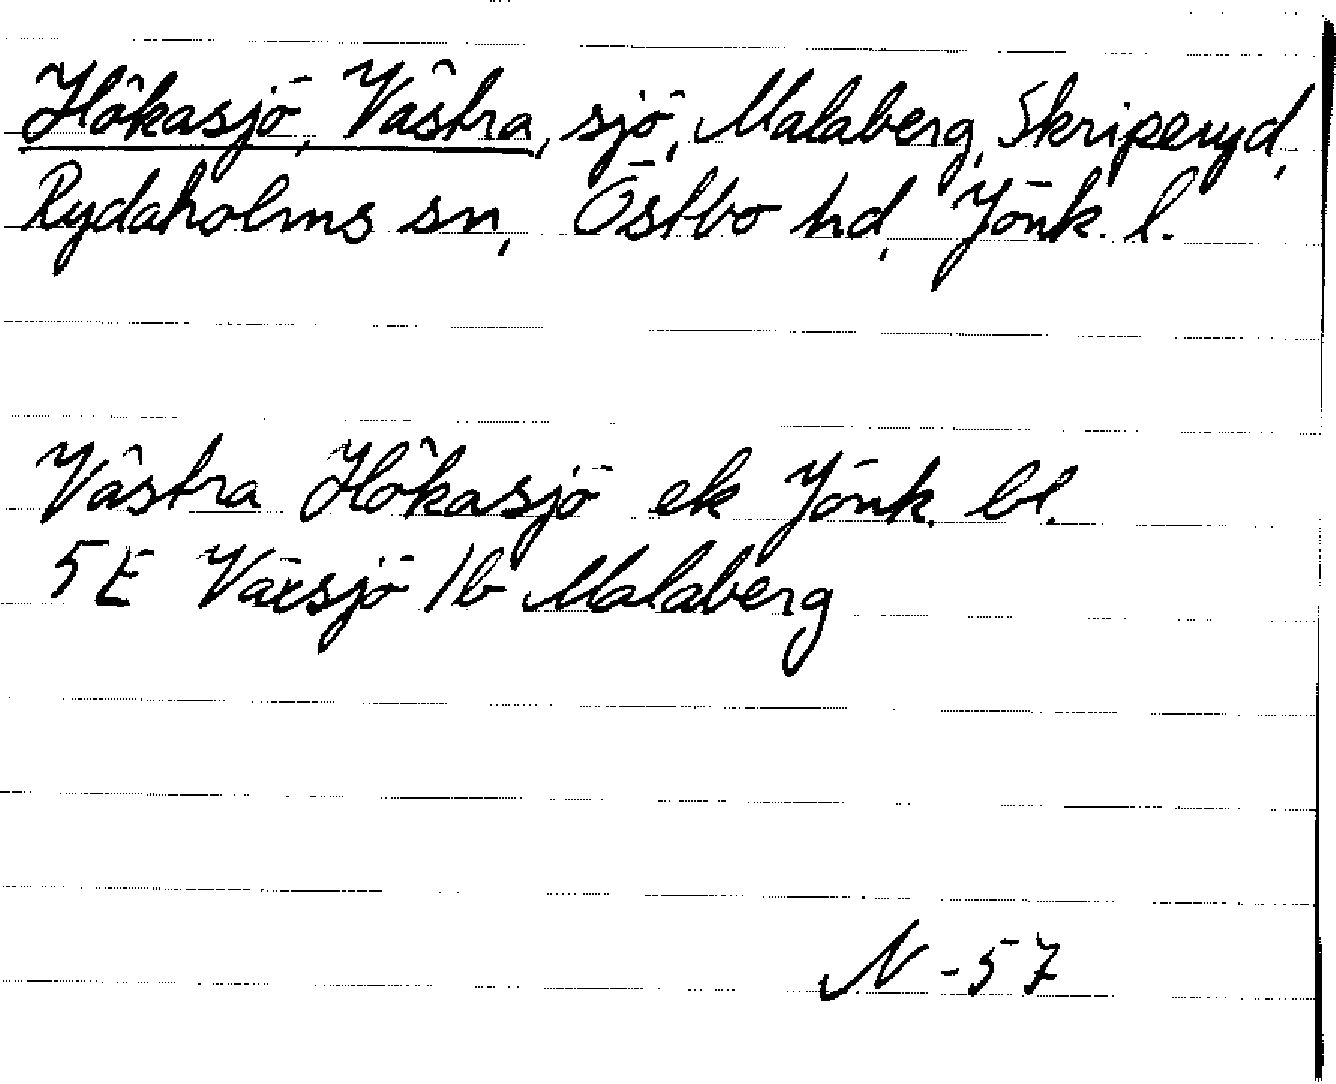 Hökasjö, Västra, sjö, Malaberg, Skriperyd,
Rydaholms sn, Östbo hd, Jönk. l.
Västra Hökasjö ek Jönk. bl.
5E Växsjö 1b Malaberg
N -57